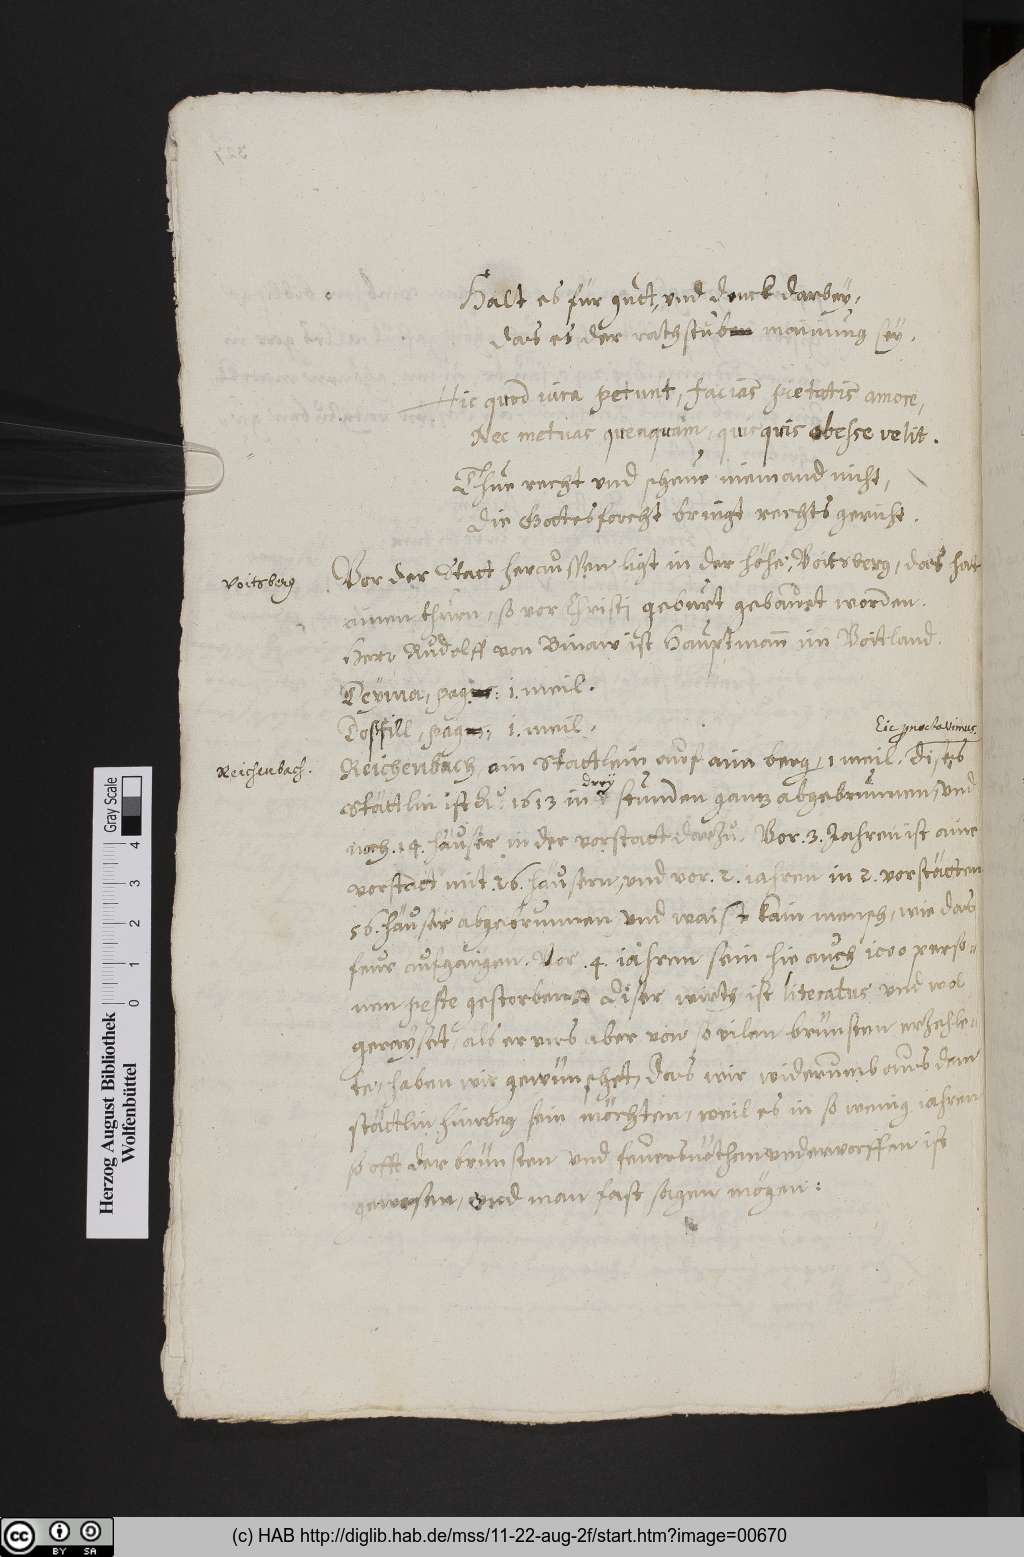 Halt es für gutt, und denck darbey,
das es der rathstuben mainung sey.
Hic quod iura petunt, facias pietatis amore,
Nec metuas quenquam, quicquis obesse velit.
Thue recht und scheue niemand nicht,
die Gottesforcht bringt rechts gericht.
Voitsberg
Vor der Statt heraussen ligt in der höhe, Voitsberg, das hat
ainen thurn, so vor Christi geburt gebauet worden.
Herr Rudolff von Binaw ist Hauptmann im Voitland.
pag. 1. meil.
pag. 1. meil.
Hic pernoctavimus.
Reichenbach.
Reichenbach, ain Stättlein auf aim berg, 1 meil. Dises
Stättlin ist Aº. 1613 in drey stunden gantz abgebrunnen, und
noch .14. häuser in der vorstatt darzu. Vor .3. Jahren ist aine
vorstatt mit .26. häusern, und vor .2. iahren in 2. vorstätten
56. häuser abgebrunnen und waist kain mensch, wie das
feur aufgangen. Vor .4. iahren sein hie auch 1000 perso-
nen peste gestorben. diser wirth ist literatus und wol
geraiset, als er uns aber von so vilen brunsten erzehle-
te, haben wir gewünschet, das wir widerumb aus dem
stättlin hinweg sein möchten, weil es in so wenig iahren
so offt der brunsten und feuersnöthen underworffen ist
gewesen, und man fast sagen mögen:
Herzog August Bibliothek
Wolfenbüttel
Gray Scale
0 1 2 3 4
CC BY SA
(c) HAB http://diglib.hab.de/mss/11-22-aug-2f/start.htm?image=00670